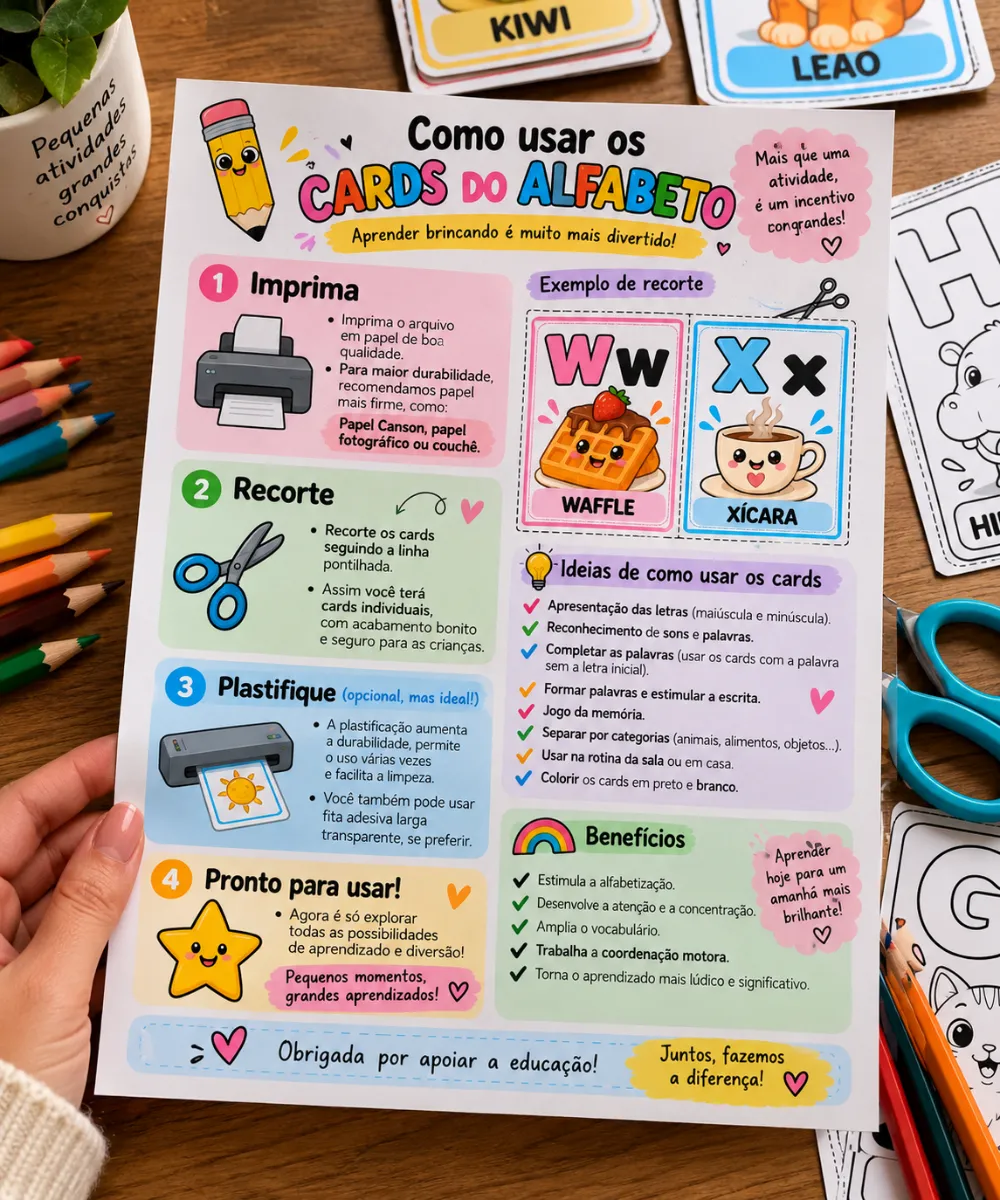 KIWI
LEAO
Pequenas
atividades
grandes
conquistas
Como usar os
CARDS DO ALFABETO
Aprender brincando é muito mais divertido!
Mais que uma
atividade,
é um incentivo
congrandes!
1 Imprima
• Imprima o arquivo
em papel de boa
qualidade.
• Para maior durabilidade,
recomendamos papel
mais firme, como:
Papel Canson, papel
fotográfico ou couchê.
2 Recorte
• Recorte os cards
seguindo a linha
pontilhada.
• Assim você terá
cards individuais,
com acabamento bonito
e seguro para as crianças.
3 Plastifique (opcional, mas ideal!)
• A plastificação aumenta
a durabilidade, permite
o uso várias vezes
e facilita a limpeza.
• Você também pode usar
fita adesiva larga
transparente, se preferir.
4 Pronto para usar!
• Agora é só explorar
todas as possibilidades
de aprendizado e diversão!
Pequenos momentos,
grandes aprendizados!
Exemplo de recorte
W w
WAFFLE
X x
XÍCARA
Ideias de como usar os cards
Apresentação das letras (maiúscula e minúscula).
Reconhecimento de sons e palavras.
Completar as palavras (usar os cards com a palavra
sem a letra inicial).
Formar palavras e estimular a escrita.
Jogo da memória.
Separar por categorias (animais, alimentos, objetos...).
Usar na rotina da sala ou em casa.
Colorir os cards em preto e branco.
Benefícios
Estimula a alfabetização.
Desenvolve a atenção e a concentração.
Amplia o vocabulário.
Trabalha a coordenação motora.
Torna o aprendizado mais lúdico e significativo.
Aprender
hoje para um
amanhã mais
brilhante!
Obrigada por apoiar a educação!
Juntos, fazemos
a diferença!
H
HI
G